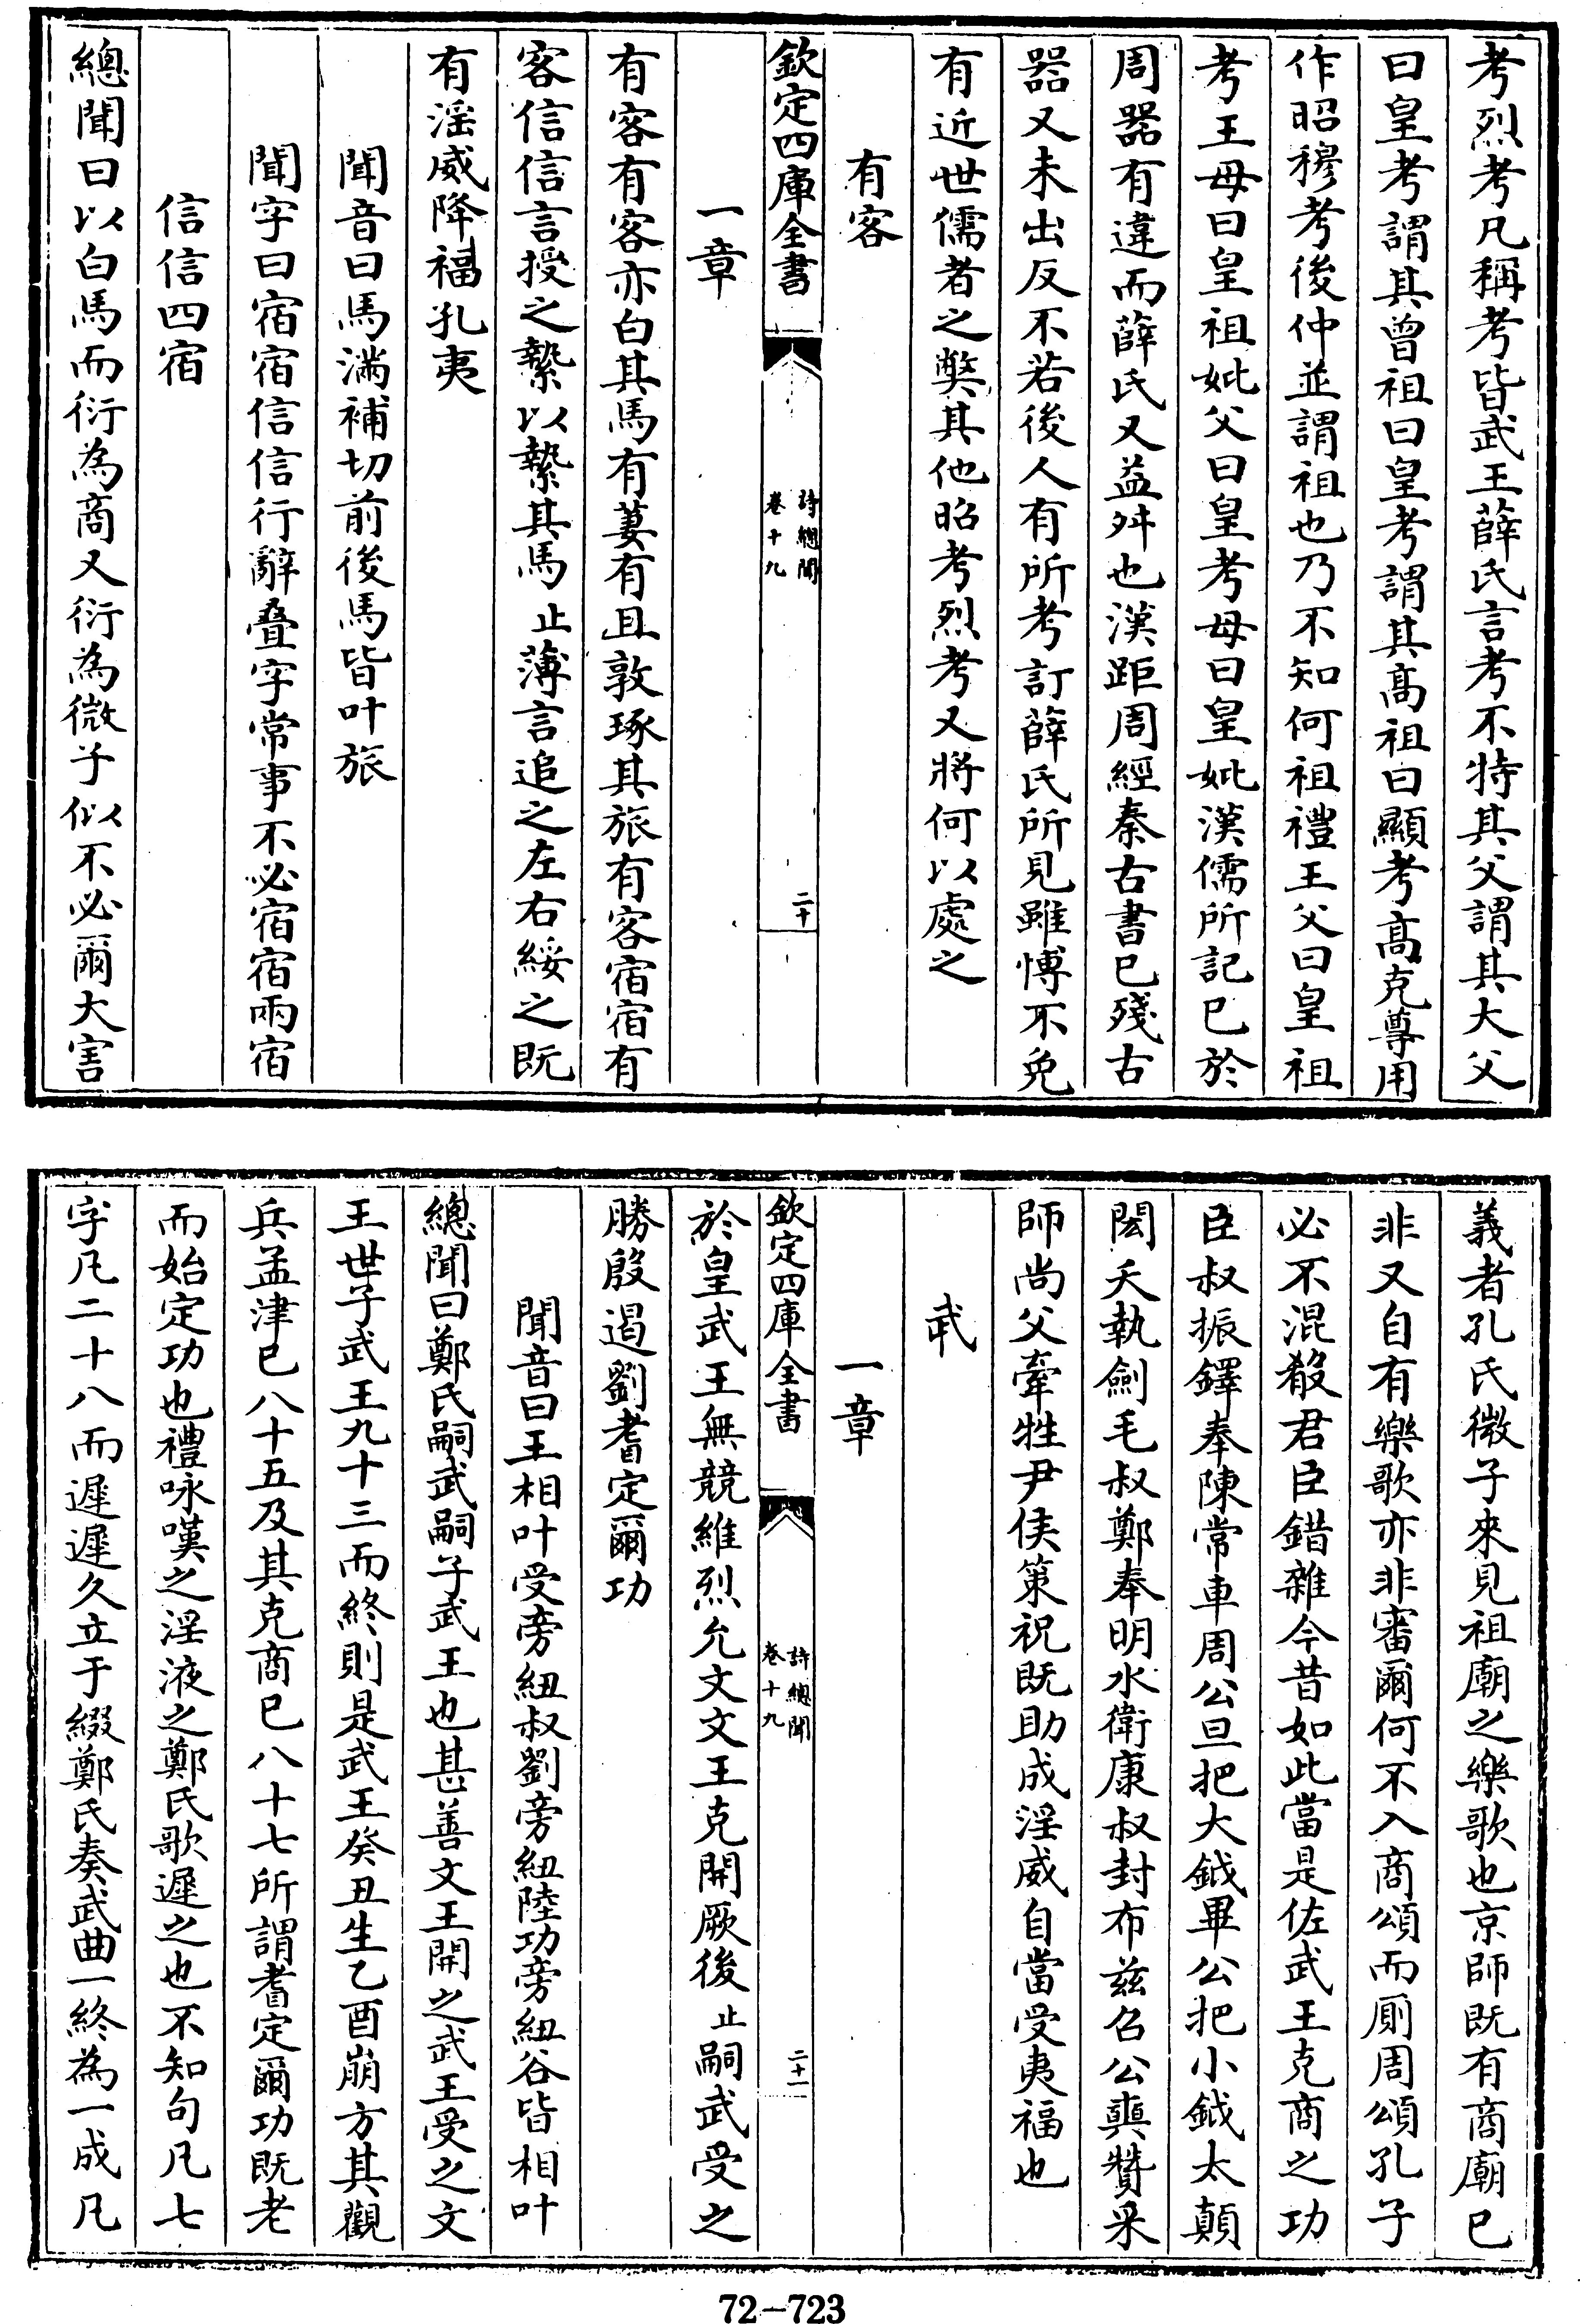 考烈考凡稱考皆武王薛氏言考不特其父謂其大父
曰皇考謂其曾祖曰皇考謂其髙祖曰顯考髙克尊用
作昭穆考後仲並謂祖也乃不知何祖禮王父曰皇祖
考王母曰皇祖妣父曰皇考母曰皇妣漢儒所記已於
周器有違而薛氏又益舛也漢距周經秦古書已殘古
器又未出反不若後人有所考訂薛氏所見雖博不免
有近世儒者之獘其他昭考烈考又將何以處之
有客
欽定四庫全書
詩總聞
卷十九
二十
一章
有客有客亦白其馬有萋有且敦琢其旅有客宿宿有
客信信言授之縶以縶其馬止薄言追之左右綏之既
有淫威降福孔夷
聞音曰馬滿補切前後馬皆叶旅
聞字曰宿宿信信行辭疊字常事不必宿宿兩宿
信信四宿
總聞曰以白馬而衍為商又衍為微子似不必爾大害
義者孔氏微子來見祖廟之樂歌也京師既有商廟已
非又自有樂歌亦非審爾何不入商頌而厠周頌孔子
必不混殽君臣錯雜今昔如此當是佐武王克商之功
臣叔振鐸奉陳常車周公旦把大鉞畢公把小鉞太顛
閎夭執劍毛叔鄭奉明水衛康叔封布兹召公奭贊采
師尚父牽牲尹佚策祝既助成淫威自當受夷福也
武
一章
欽定四庫全書
詩總聞
卷十九
二十一
於皇武王無競維烈允文文王克開厥後止嗣武受之
勝殷遏劉耆定爾功
聞音曰王相叶受旁紐叔劉旁紐陸功旁紐谷皆相叶
總聞曰鄭氏嗣武嗣子武王也甚善文王開之武王受之文
王世子武王九十三而終則是武王癸丑生乙酉崩方其觀
兵孟津已八十五及其克商已八十七所謂耆定爾功既老
而始定功也禮咏嘆之淫液之鄭氏歌遲之也不知句凡七
字凡二十八而遲遲久立于綴鄭氏奏武曲一終為一成凡
72-723